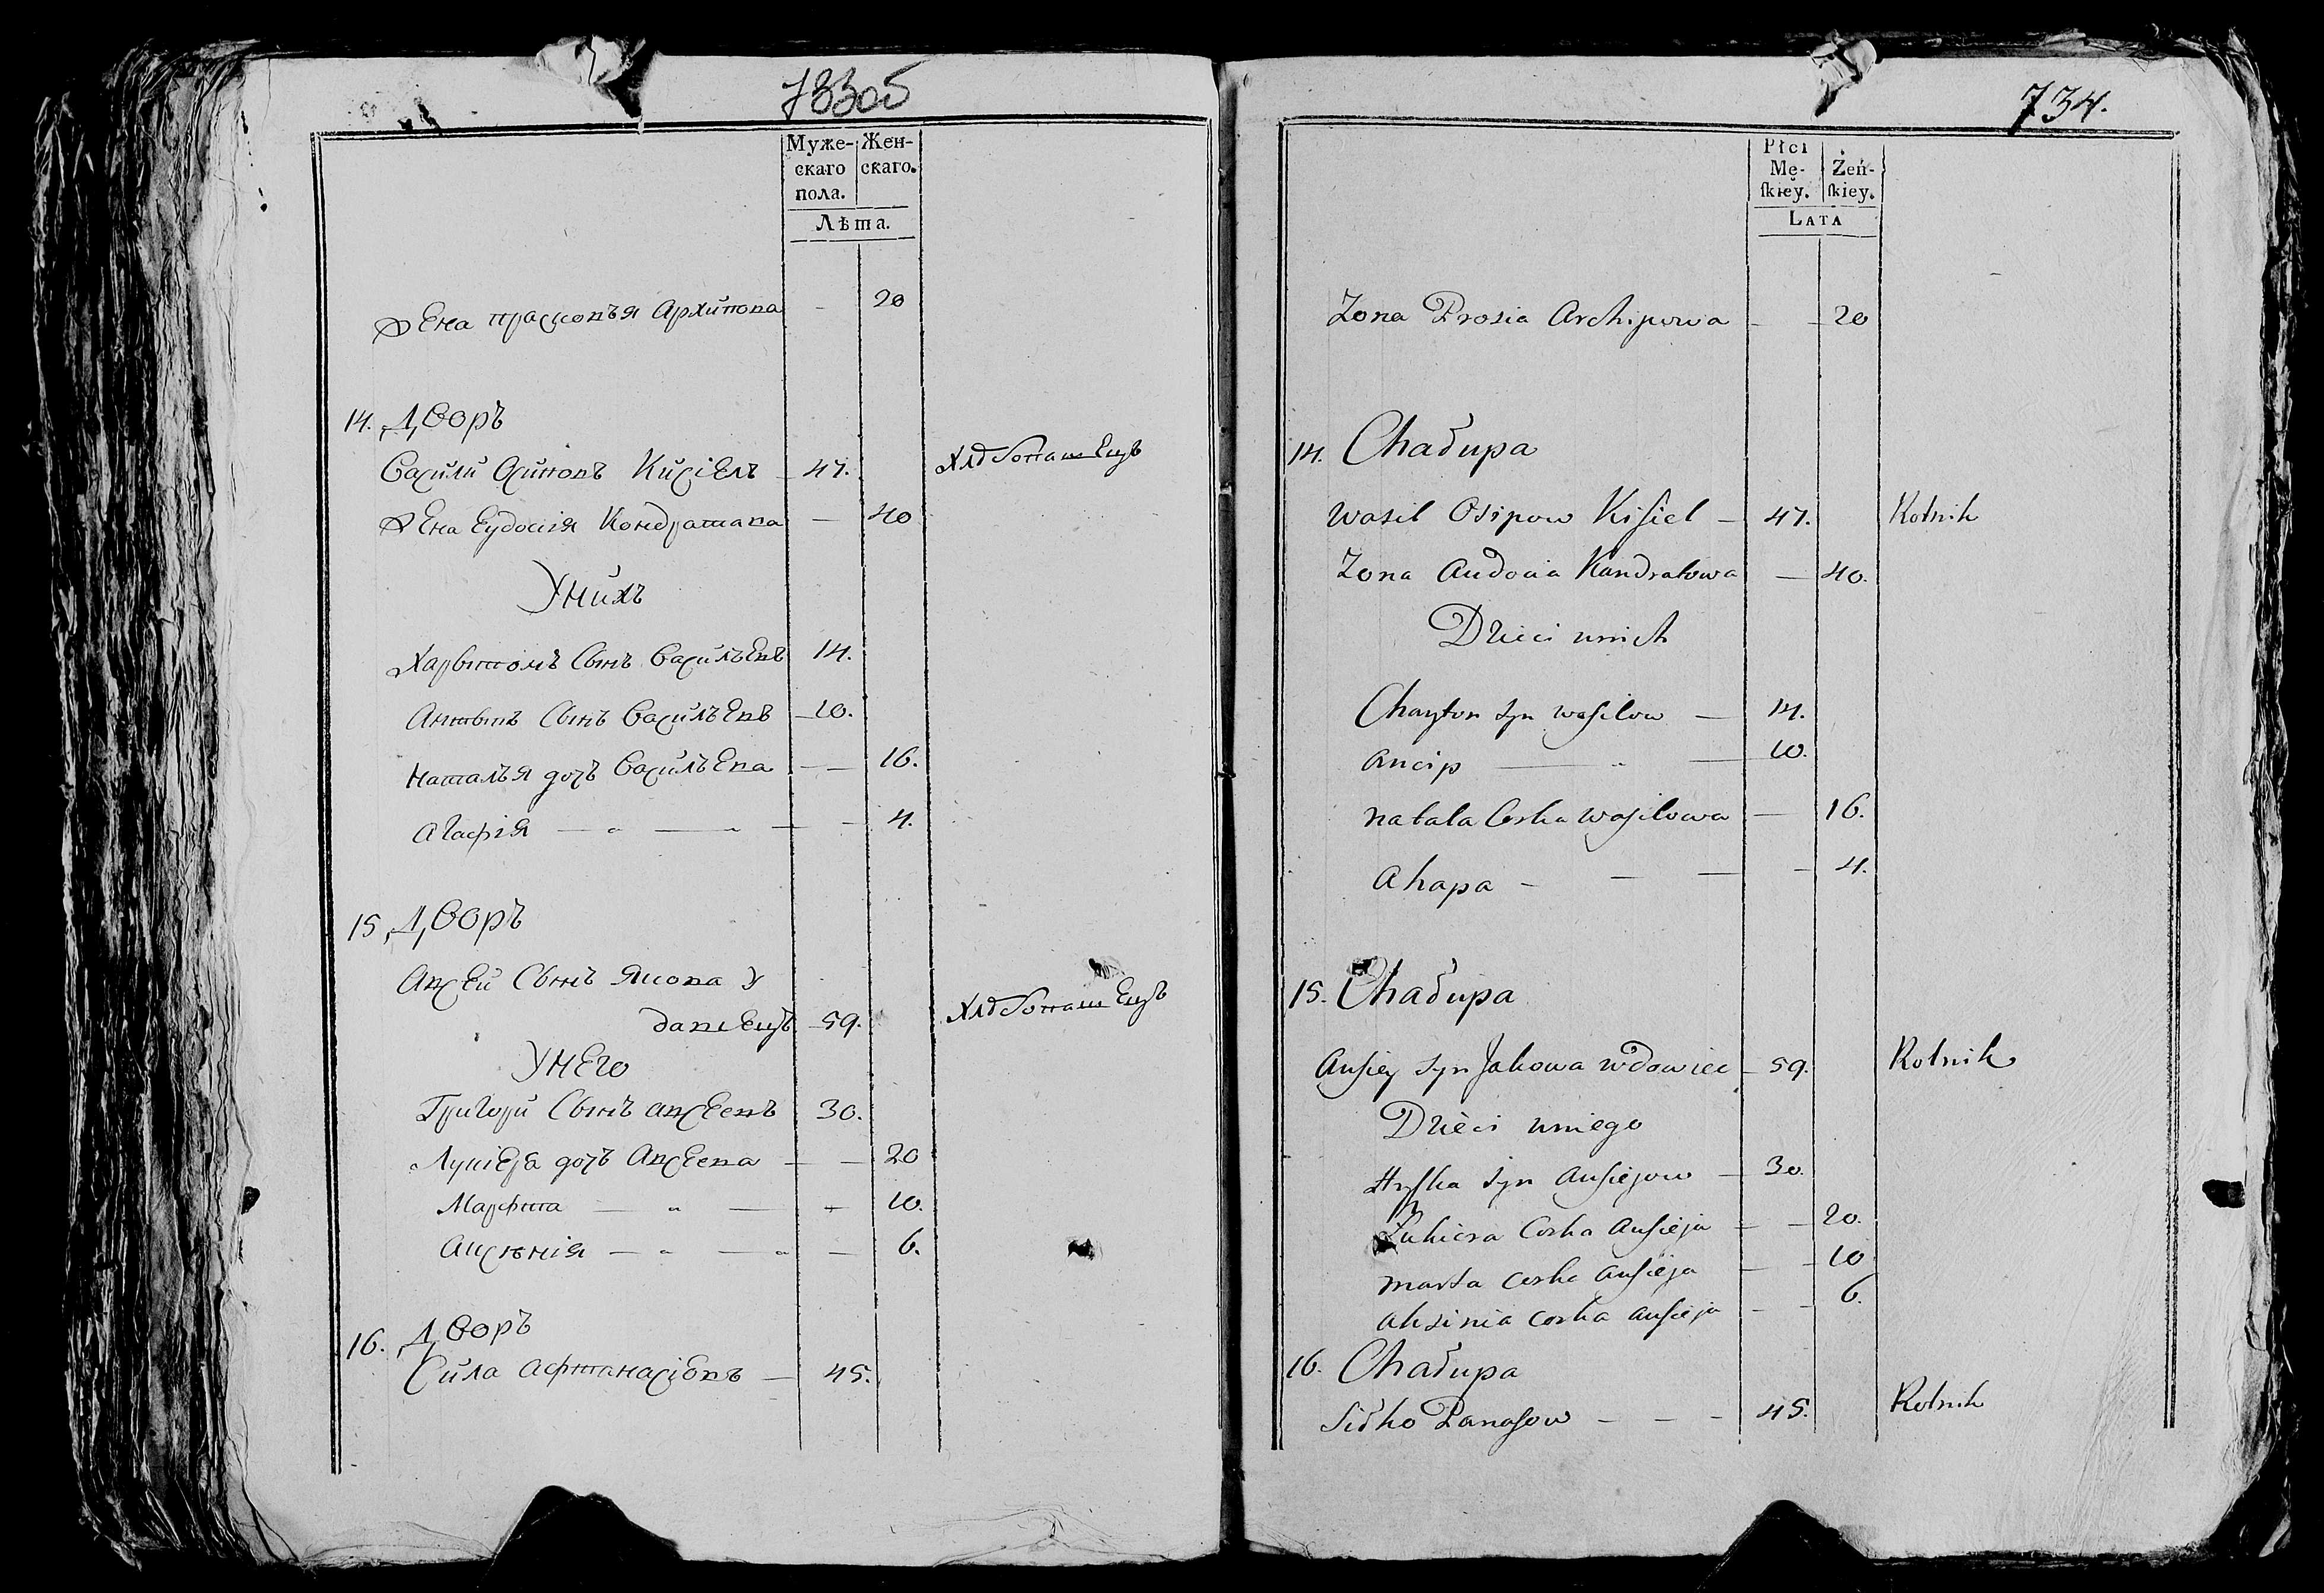 733об
Муже-
скаго
пола.
Жен-
скаго.
Лѣта.
Жена Прасковъя Архипова - 20
14. Дворъ
Васили Осиповъ Кисіель - 47. Хлебопашецъ
Жена Еудокія Кондратава - 40
У нихъ
Харытонъ Сынъ Васильевъ 14.
Антыпъ Сынъ Васильевъ - 10.
Наталья дочъ Васильева - - 16.
Агафія - " - " - - 4.
15 Дворъ
Авсей Сынъ Якова У
давецъ - 59. Хлебопашецъ
У него
Григори Сынъ Авсеевъ 30.
Лукіера дочъ Авсеева - - 20
Марфта - " - - 10.
Аксенія - " - " - 6.
16. Дворъ
Сила Афтанасіевъ - 45.
734.
Płci
Mę-
skiey.
Żeń-
skiey.
LATA
Zona Prosia Archipowa - - 20
14. Chałupa
Wasil Osipow Kisiel - 47. Rolnik
Zona Audocia Kandratowa - 40.
Dzieci unich
Charyton syn wasilow - 14.
Ancip - " - 10.
Natala Corka wasilowa - 16.
Ahapa - - - - 4.
15. Chałupa
Ausiey syn Jakowa wdowiec - 59. Rolnik
Dzieci uniego
Hryska syn Ausiejow - 30.
Łukiera Corka Ausieja - - 20.
Marta Corka Ausieja - - 10
Aksinia corka Ausieja - - 6.
16. Chałupa
Siłko Panasow - - - 45. Rolnik